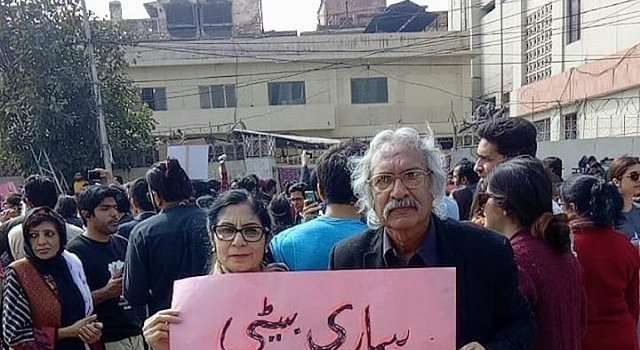 ہماری بیٹی